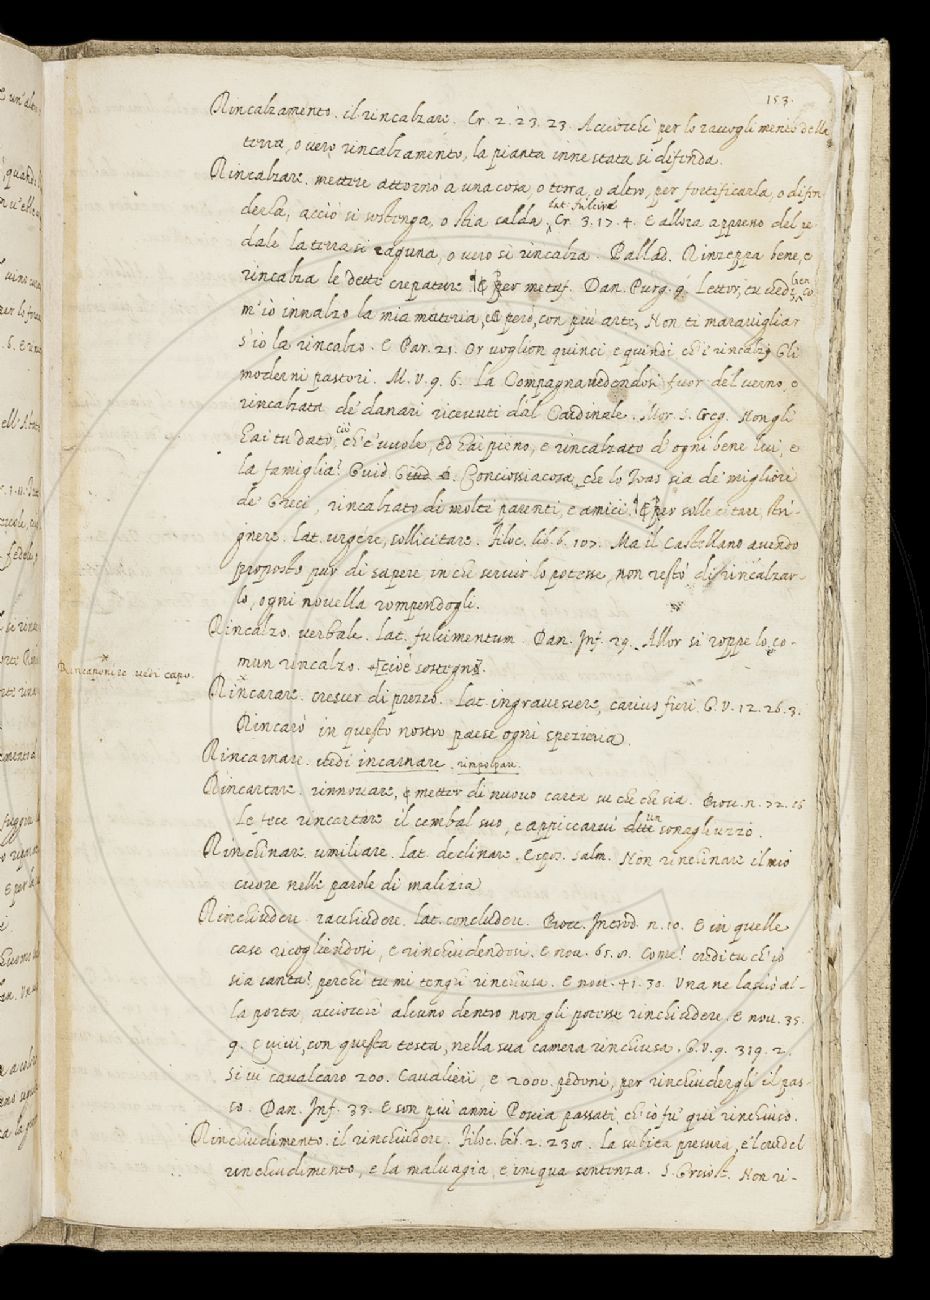 153.
Rincalzamento. il rincalzare. Cr. 2. 23. 23. Acciocchè per lo raccoglimento della
terra, o vero rincalzamento, la pianta innestata si difenda.
Rincalzare. mettere attorno a una cosa o terra, o altro, per fortificarla, o difen
derla, acciò si sostenga, o stia calda. lat. fulcire Cr. 3. 17. 4. E allora appreno del pe
dale la terra si raguna, o vero si rincalza. Pallad. Rinzeppa bene, e
rincalza le dette crepature. Per metaf. Dan. Purg. 9. Lettor, tu vedi ben co
m'io innalzo la mia materia, e però, con più arte, Non ti maravigliar
s'io la rincalzo. E Par. 21. Or voglion quinci e quindi chi i rincalzi Gli
moderni pastori. M. V. 9. 6. La Compagna vedendosi fuor del verno, e
rincalzata de' danari ricevuti dal Cardinale. Mor. S. Greg. Non gli
hai tu dato, ciò ch'e' vuole, ed hai pieno, e rincalzato d'ogni bene lui, e
la famiglia? Guid. G. Conciossiacosa, che lo Toas sia de' migliori
de' Greci, rincalzato di molti parenti, e amici. Per sollecitare, stri-
gnere. lat. urgere, sollicitare. Filoc. lib. 6. 107. Ma il Castellano avendo
proposto pur di sapere in che servir lo potesse, non restò di rincalzar-
lo, ogni novella rompendogli.
Rincalzo. verbale. lat. fulcimentum. Dan. Inf. 29. Allor si roppe lo co-
mun rincalzo. cioè sostegno.
Rincaponire vedi capo.
Rincarare. crescer di prezzo. lat. ingravescere, carius fieri. G. V. 12. 26. 3.
Rincarò in questo nostro paese ogni spezieria.
Rincarnare. vedi incarnare. rimpolpare.
Rincartare. rinnovare, e metter di nuovo carta su che che sia. Bocc. n. 72. 15
Le fece rincartare il cembal suo, e appiccarvi un sonagliuzzo.
Rinchinare. umiliare. lat. declinare. Espos. Salm. Non rinchinare il mio
cuore nelle parole di malizia
Rinchiudere. racchiudere. lat. concludere. Bocc. Introd. n. 10. E in quelle
case ricogliendosi, e rinchiudendosi. E nov. 65. 8. Come? credi tu ch'io
sia santa? perchè tu mi tenghi rinchiusa. E nov. 41. 30. Una ne lasciò al-
la porta, acciocchè alcuno dentro non gli potesse rinchiudere. E nov. 35.
9. E quivi, con questa testa, nella sua camera rinchiusa. G. V. 9. 319. 2.
Si vi cavalcaro 200. Cavalieri, e 2000. pedoni, per rinchiudergli il pas-
so. Dan. Inf. 33. E son più anni Poscia passati, ch'io fu' qui rinchiuso.
Rinchiudimento. il rinchiudere. Filoc. lib. 2. 230. La subita presura, e 'l crudel
rinchiudimento, e la malvagia, e iniqua sentenza. S. Grisost. Non ri-